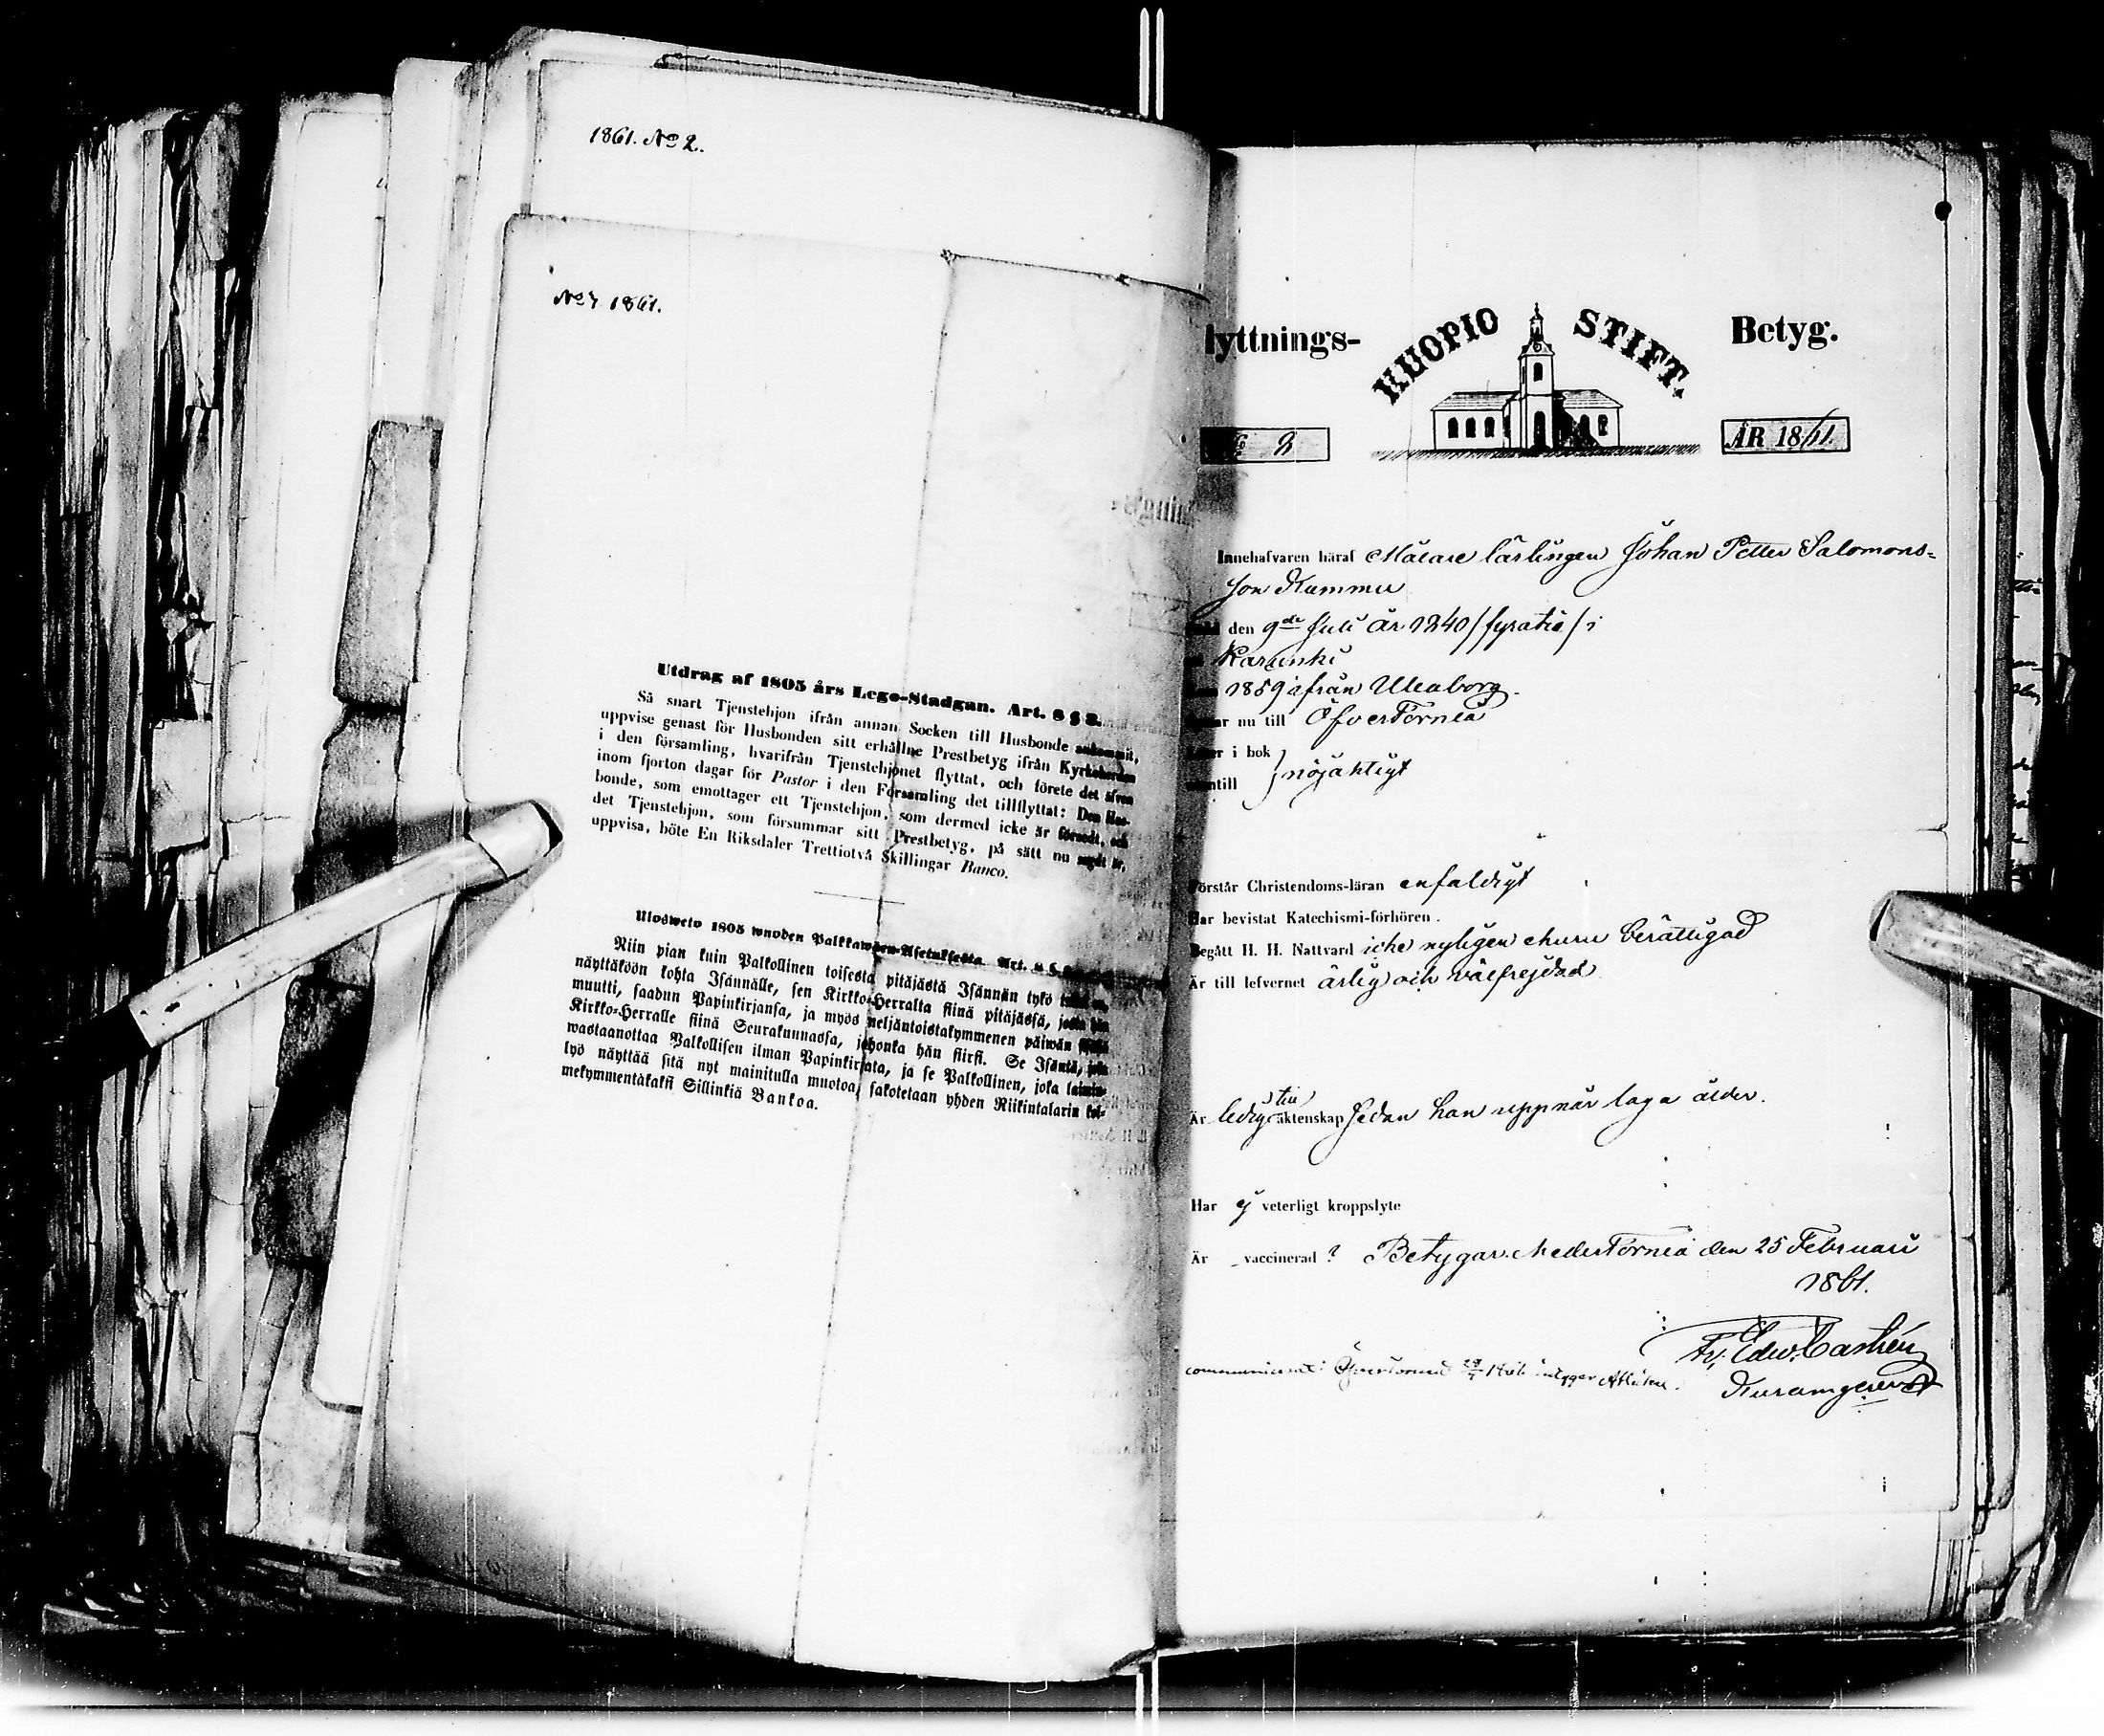 1861. No 2.
No 7 1861.
Utdrag af 1805 års Lego-Stadgan. Art. 8 § 3.
Så snart Tjenstehjon ifrån annan Socken till Husbonde ankommit,
uppvise genast för Husbonden sitt erhållne Prestbetyg ifrån Kyrkoherden
i den församling, hvarifrån Tjenstehjonet flyttat, och förete det äfven
inom fjorton dagar för Pastor i den Församling det tillflyttat: Den Hus-
bonde, som emottager ett Tjenstehjon, som dermed icke är försedt, och
det Tjenstehjon, som försummar sitt Prestbetyg, på sätt nu sagdt är,
uppvisa, böte En Riksdaler Trettiotvå Skillingar Banco.
Ulosweto 1805 wuoden Palkkawäen-Asetuksesta. Art. 8 §.
Niin pian kuin Palkollinen toisesta pitäjästä Isännän tykö
näyttäköön kohta Isännälle, sen Kirkko-Herralta siinä pitäjässä, josta hän
muutti, saadun Papinkirjansa, ja myös neljäntoistakymmenen päiwän
Kirkko-Herralle siinä Seurakunnassa, johonka hän siirsi. Se Isäntä, joka
wastaanottaa Palkollisen ilman Papinkirjata, ja se Palkollinen, joka laimin-
lyö näyttää sitä nyt mainitulla muotoa, sakotetaan yhden Riikintalarin kol-
mekymmentäkaksi Sillinkiä Bankoa.
lyttnings- KUOPIO STIFT. Betyg.
8 ÅR 1861.
Innehafvaren häraf Målare lärlingen Johan Petter Salomons-
son Kummu
den 9de Juli år 1840 /fyratio/ i
Karunki
1859 ifrån Uleaborg.
nu till ÖfverTorneå
i bok
nöjaktigt
ntill
Förstår Christendoms-läran enfaldigt
Har bevistat Katechismi-förhören.
Begått H. H. Nattvard icke nyligen ehuru berättigad
Är till lefvernet ärlig och välfrejdad
Är ledig till äktenskap sedan han uppnår laga ålder.
Har ej veterligt kroppslyte
Är vaccinerad? Betygar. NederTorneå den 25 Februari
1861.
Fr. Edw. Castrén
communicerat: Öfvertorneå 1861